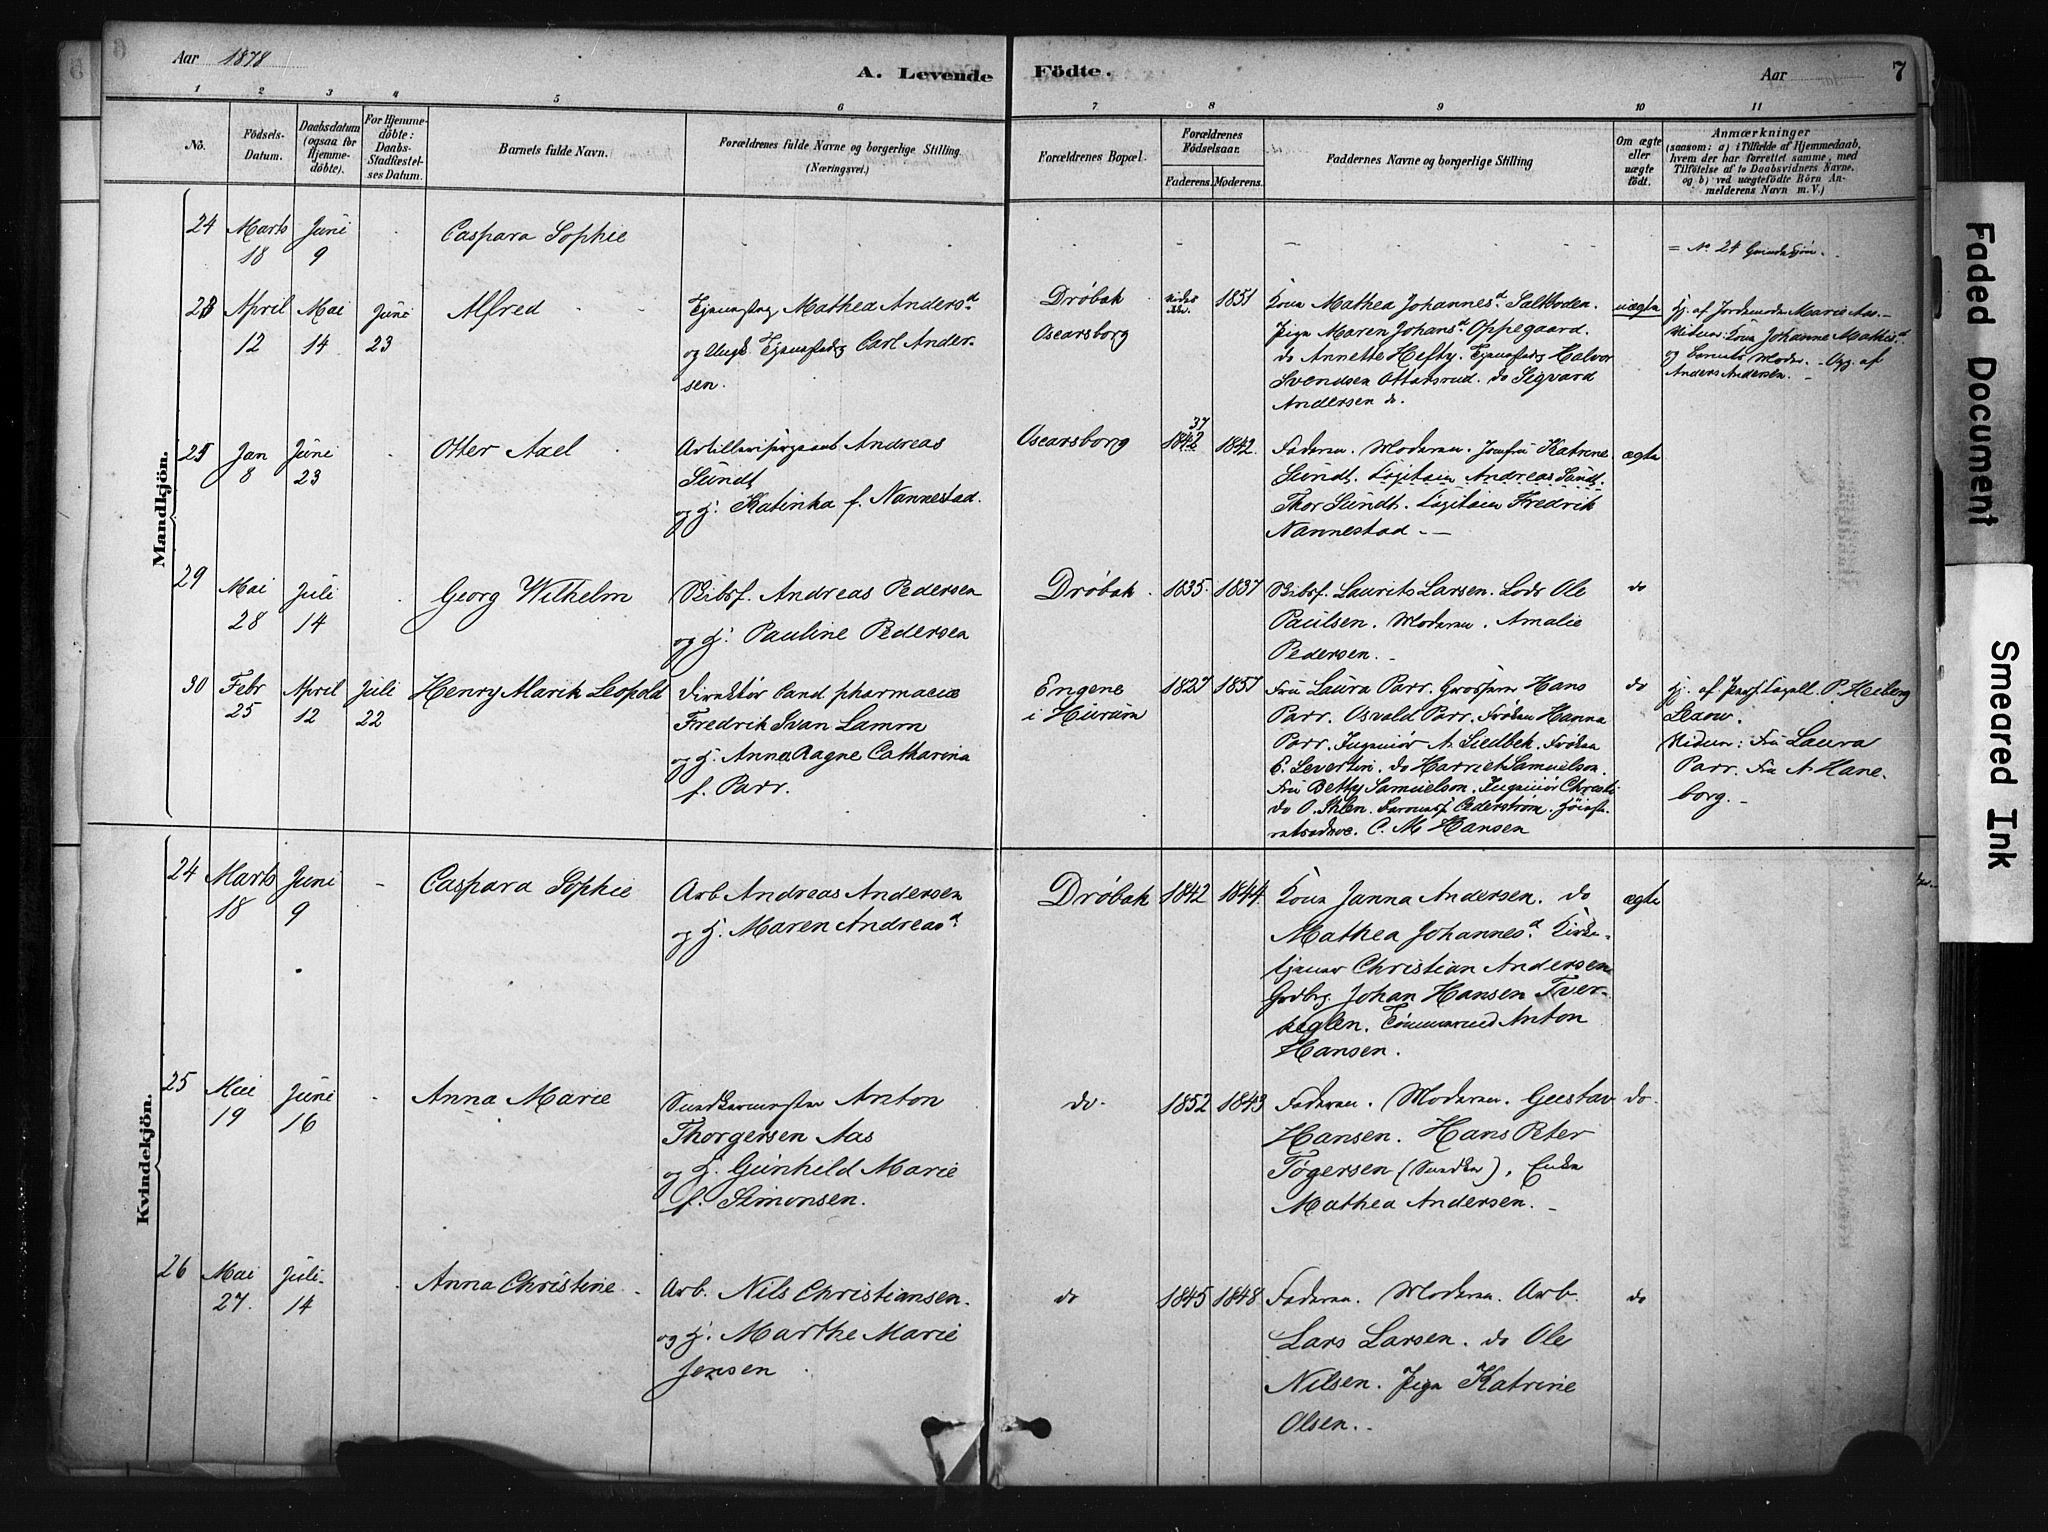 Aar 1878
A. Levende Födte.
Aar
7
1 2 3 4 5 6 7 8 9 10 11
No.
Födsels-
Datum.
Daabsdatum
(ogsaa for
Hjemme-
döbte).
For Hjemme-
döbte:
Daabs-
Stadfæstel-
ses Datum.
Barnets fulde Navn.
Forældrenes fulde Navne og borgerlige Stilling
(Næringsvei.)
Forældrenes Bopæl.
Forældrenes
Födselsaar.
Faderens. Moderens.
Faddernes Navne og borgerlige Stilling
Om ægte
eller
uægte
födt.
Anmærkninger
(saasom: a) i Tilfælde af Hjemmedaab,
hvem der har forrettet samme, med
Tilföielse af to Daabsvidners Navne,
og b) ved uægtefödte Börn An-
melderens Navn m. V.)
Mandkjön.
24
Marts
18
Juni
9
Caspara Sophie
= No 24 Qvindekjön.
28
April
12
Mai
14
Juni
23
Alfred
Mathea Andersd
og Carl Ander-
sen.
Dröbak
Oscarsborg
1851
Kona Mathea Johannesd Saltboden.
Pige Maren Johansd Oppegaard.
do Annette Hefty. Halvor
Svendsen Ottarsrud. do Sigvard
Andersen do.
uægte
Hj. af Jordemoder Marie Aas.
Vidner: Kona Johanne Mathisd
og Barnets Moder. Opg. af
Anders Andersen.
25
Jan
8
Juni
23
Otter Axel
Artillerisergeant Andreas
Sundt
og H. Katinka f. Nannestad.
Oscarsborg
37
1842
1842.
Faderen. Moderen. Jomfru Katrine
Sundt. Andreas Sundt.
Thor Sundt. Fredrik
Nannestad
ægte
29
Mai
28
Juli
14
Georg Wilhelm
Skibsf. Andreas Pedersen
og H. Pauline Pedersen
Dröbak.
1835. 1837
Skibsf. Laurits Larsen. Lods Ole
Paulsen. Moderen. Amalie
Pedersen.
do
30
Febr
25
April
12
Juli
22
Henry Marik Leopold
Direktör Cand. pharmaciæ
Fredrik Ivan Lamm
og H. Anna Ragne Catharina
f. Parr.
Engene
i Hurum
1827 1851
Fru Laura Parr. Grosserer Hans
Parr. Osvald Parr. Fröken Hanna
Parr. Ingeniör A. Liedbek. Fröken
E. Levertin. do Harriet Samuelson.
Fru Betty Samuelson. Ingeniör Christi
do O. Cederström. Höieste-
retsadvoc. C. M. Hansen
do
Hj. af P. Heiberg
Lexow.
Vidner: Fru Laura
Parr. Fru A. Hane-
borg.
Kvindekjön.
24
Marts
18
Juni
9
Caspara Sophie
Arb Andreas Andersen
og H. Maren Andreasd
Dröbak
1842 1844
Kona Janna Andersen. do
Mathea Johannesd. Kirke-
tjener Christian Andersen
Grdbrg. Johan Hansen Tver-
keglen. Tömmermd Anton
Hansen.
ægte
25
Mai
19
Juni
16
Anna Marie
Snedkermester Anton
Thorgersen Aas
og H. Gunhild Marie
f. Simonsen.
do.
1852 1843
Faderen. Moderen. Gustav
Hansen. Hans Peter
Tögersen (Snedker), Enke
Mathea Andersen.
do.
26
Mai
27.
Juli
14
Anna Christine
Arb. Nils Christiansen.
og H. Marthe Marie
Jensen
do
1845 1848
Faderen. Moderen. Arb.
Lars Larsen. do Ole
Nilsen. Pige Katrine
Olsen.
do
Faded Document
Smeared Ink